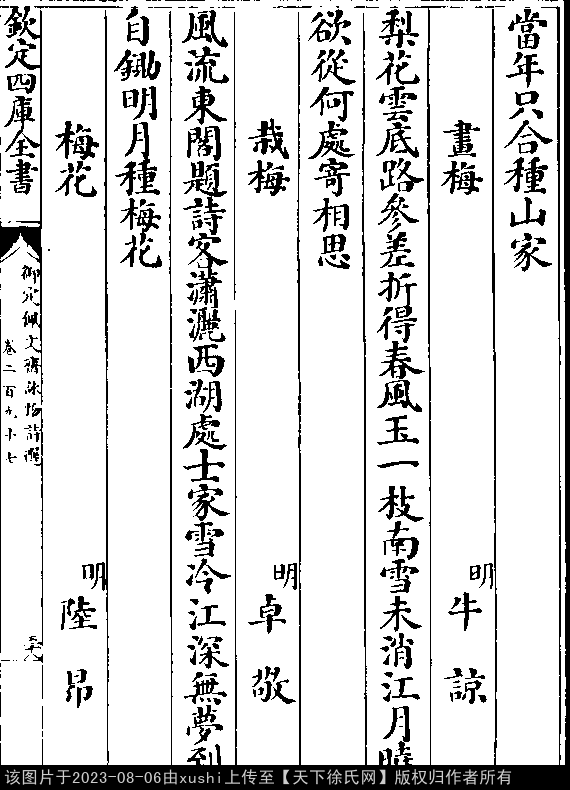 當年只合種山家
畫梅
明牛諒
梨花雲底路參差折得春風玉一枝南雪未消江月曉
欲從何處寄相思
栽梅
明卓敬
風流東閣題詩客瀟灑西湖處士家雪冷江深無夢到
自鋤明月種梅花
梅花
明陸昂
欽定四庫全書
御定佩文齋詠物詩選
卷二百九十七
该图片于2023-08-06由xushi上传至【天下徐氏网】版权归作者所有